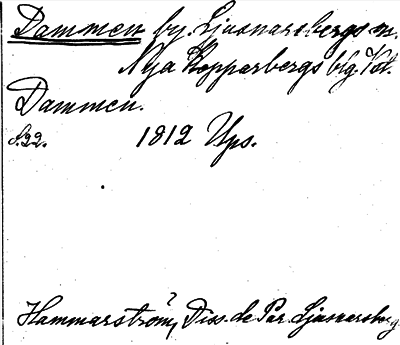 Dammen by, Ljusnarsbergs sn.
Nya Kopparbergs blg. Vstl.
Dammen.
S. 22. 1812 Ups.
Hammarström, Diss. de Par. Ljusnarsberg